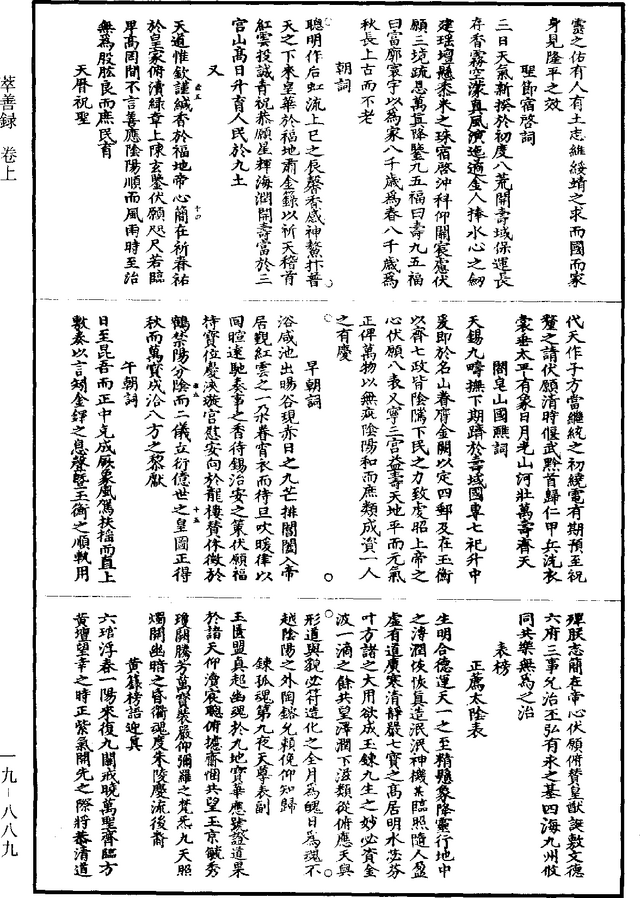 靈之佑有人有土志維綏靖之求而國而家
身見隆平之效
聖節宿啓詞
三日天氣新揆於初度八荒開壽域保運長
存香霧空濛真風演迤適金人捧水心之劒
建瑶壇懸黍米之珠宿啓沖科仰關宸慮伏
願三境疏恩萬真降鑒九五福曰壽九五福
曰富廓寰宇以為家八千歲為春八千歲為
秋長上古而不老
朝詞
聰明作后虹流上巳之辰馨香感神鰲抃普
天之下來皇華於福地肅金籙以祈天稽首
紅雲投誠青祝恭願星輝海潤開壽富於三
宫山高日升育人民於九土
又
天道惟欽謹緘香於福地帝心簡在祈眷祐
於皇家俯瀆綠章上陳玄鑒伏願咫尺若臨
卑高罔間不言善應陰陽順而風雨時至治
無為股肱良而庶民育
天曆祝聖
代天作子方當繼統之初繞電有期預至祝
釐之請伏願清時偃武黔首歸仁甲兵洗衣
裳垂太平有象日月光山河壯萬壽齊天
閤皂山國醮詞
天錫九疇撫下期躋於壽域國專七祀升中
爰即於名山眷膺金闕以定四郵及在玉衡
以齊七政皆陰隲下民之力致虔昭上帝之
心伏願八表乂寧三宫益壽天地平而元氣
正俾萬物以無疵陰陽和而庶類成資一人
之有慶
早朝詞
浴咸池出暘谷現赤日之九芒排閶闔入帝
居觀紅雲之一朵眷宵衣而待旦吹暖律以
同暄速馳奏事之香待錫治安之策伏願福
持寶位慶浹璇宫慰安向於龍樓贊休徵於
鶴禁陽分陰而二儀立衍億世之皇圖正得
秋而萬寶成洽八方之黎獻
午朝詞
日至昆吾而正中克成厥象風駕扶摇而直上
敷奏以言矧金鐸之息聲暨玉衡之順軌用
殫朕志簡在帝心伏願俯贊皇猷誕敷文德
六府三事允治丕弘有永之基四海九州攸
同共樂無為之治
表榜
正薦太陰表
生明合德運天一之至精懸象降靈行地中
之溥潤恢恢真造泯泯神機某臨照隨人盈
虛有道廣寒清靜嚴七寶之高居明水苾芬
叶方諸之大用欲成玉鍊九生之妙必資金
波一滴之餘共望澤潤下滋類從俯應天與
形道與貌必符造化之全月為魄日為魂不
越陰陽之外陶鎔允賴俛仰知歸
鍊孤魂第九夜天尊表副
玉匱盟真超幽魂於九地寶華應號證道果
於諸天仰瀆宸聰俯攄齋悃共望玉京毓秀
瓊闕騰芳萬寶裝嚴仰彌羅之梵炁九天照
燭開幽暗之昏衢魂度朱陵慶流後裔
黄籙榜語迎真
六琯浮春一陽來復九關戒曉萬聖齊臨方
黄壇望幸之時正紫氣開先之際將恭清道
萃善録　卷上
九－八八九